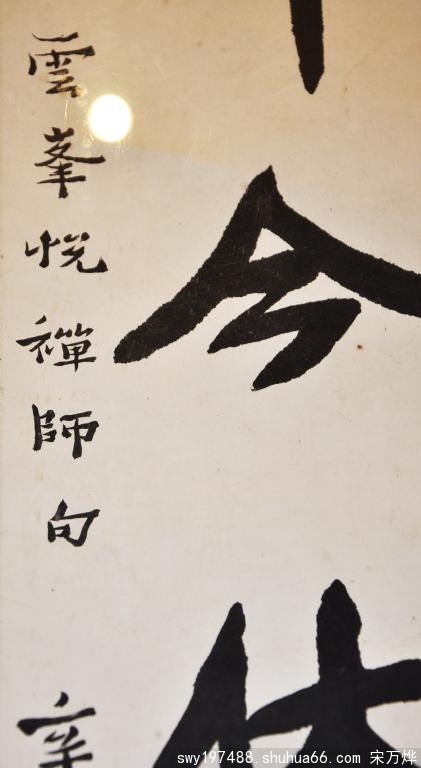 今休
雲峯悦禪師句
swy197488.shuhua66.com 宋万烨